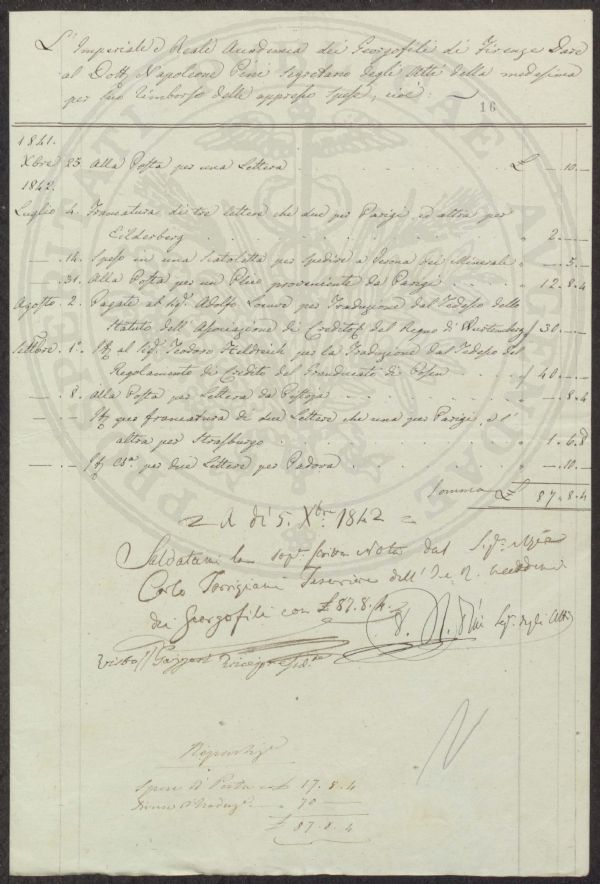 L'Imperiale e Reale Accademia dei Georgofili di Firenze Dare
al Dott. Napoleone Pini Segretario degli Atti della medesima
per suo rimborso delle appresso spese, cioè:
16
1841.
Xbre 23. Alla Posta per una Lettera £ —.10.—
1842.
Luglio 4. Francatura di tre lettere che due per Parigi ed altra per
Eilderberg " 2.—.—
— 14. Spese in una Scatoletta per spedire a dei Minerali " —.5.—
— 31. Alla Posta per un Plico proveniente da Parigi " 12.8.4
Agosto 2. Pagate al Sigr. Adolfo per Traduzione dal Tedesco dello
Statuto dell'Associazione di Credito del Regno di Wurtemberg " 30.—.—
Settbre 1°. al Sigr. Teodoro Heldreich per la Traduzione dal Tedesco del
Regolamento di Credito del Granducato di Posen " 40.—.—
— 8. Alla Posta per Lettera da Pistoja " —.8.4
— — per francatura di due Lettere che una per Parigi, e l'
altra per Strasburgo " 1.6.8
— — per due Lettere per Padova " —.10.—
Somma £ 87.8.4
A dì 5. Xbre 1842
Saldatami la Nota dal Sigr.
Carlo Torrigiani Tesoriere dell'I. e R. Accademia
dei Georgofili con £ 87.8.4
N. Pini Segr. degli Atti
Visto Gazzeri Vicepresid.te
Spese di Posta £ 17.8.4
" 70 —
£ 87.8.4
PROSPERITATI PUBLICAE AUGENDAE